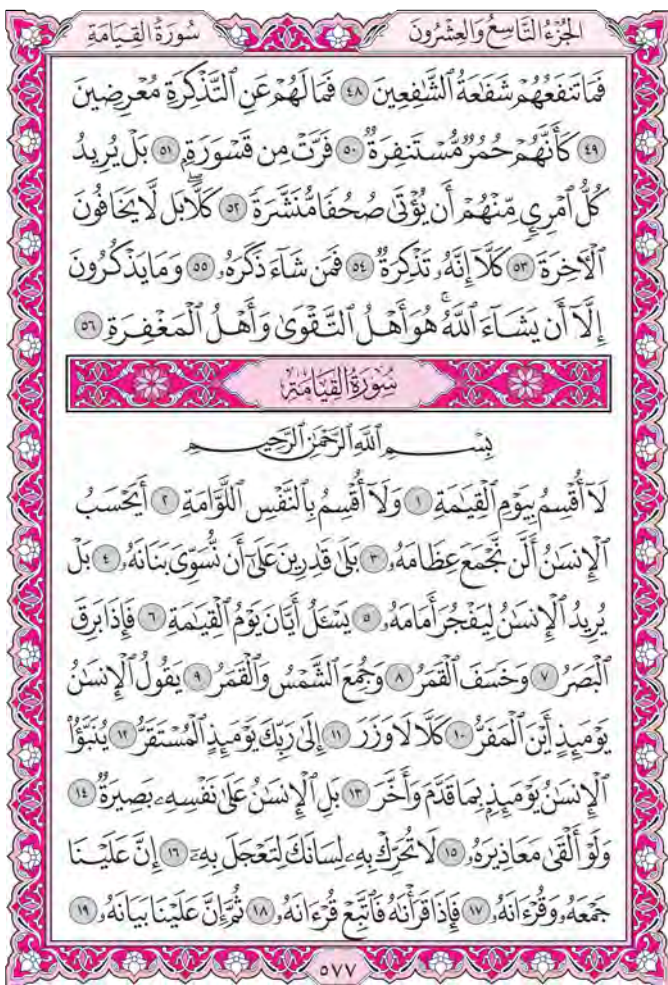 الجُزْءُ التَّاسِعُ وَالعِشْرُونَ سُورَةُ القِيَامَةِ
فَمَا تَنفَعُهُمْ شَفَٰعَةُ ٱلشَّٰفِعِينَ ٤٨ فَمَا لَهُمْ عَنِ ٱلتَّذْكِرَةِ مُعْرِضِينَ
٤٩ كَأَنَّهُمْ حُمُرٌ مُّسْتَنفِرَةٌ ٥٠ فَرَّتْ مِن قَسْوَرَةٍۭ ٥١ بَلْ يُرِيدُ
كُلُّ ٱمْرِئٍ مِّنْهُمْ أَن يُؤْتَىٰ صُحُفًا مُّنَشَّرَةً ٥٢ كَلَّاۖ بَل لَّا يَخَافُونَ
ٱلْأٓخِرَةَ ٥٣ كَلَّآ إِنَّهُۥ تَذْكِرَةٌ ٥٤ فَمَن شَآءَ ذَكَرَهُۥ ٥٥ وَمَا يَذْكُرُونَ
إِلَّآ أَن يَشَآءَ ٱللَّهُۚ هُوَ أَهْلُ ٱلتَّقْوَىٰ وَأَهْلُ ٱلْمَغْفِرَةِ ٥٦
سُورَةُ القِيَامَةِ
بِسْمِ ٱللَّهِ ٱلرَّحْمَٰنِ ٱلرَّحِيمِ
لَآ أُقْسِمُ بِيَوْمِ ٱلْقِيَٰمَةِ ١ وَلَآ أُقْسِمُ بِٱلنَّفْسِ ٱللَّوَّامَةِ ٢ أَيَحْسَبُ
ٱلْإِنسَٰنُ أَلَّن نَّجْمَعَ عِظَامَهُۥ ٣ بَلَىٰ قَٰدِرِينَ عَلَىٰٓ أَن نُّسَوِّىَ بَنَانَهُۥ ٤ بَلْ
يُرِيدُ ٱلْإِنسَٰنُ لِيَفْجُرَ أَمَامَهُۥ ٥ يَسْـَٔلُ أَيَّانَ يَوْمُ ٱلْقِيَٰمَةِ ٦ فَإِذَا بَرِقَ
ٱلْبَصَرُ ٧ وَخَسَفَ ٱلْقَمَرُ ٨ وَجُمِعَ ٱلشَّمْسُ وَٱلْقَمَرُ ٩ يَقُولُ ٱلْإِنسَٰنُ
يَوْمَئِذٍ أَيْنَ ٱلْمَفَرُّ ١٠ كَلَّا لَا وَزَرَ ١١ إِلَىٰ رَبِّكَ يَوْمَئِذٍ ٱلْمُسْتَقَرُّ ١٢ يُنَبَّؤُا۟
ٱلْإِنسَٰنُ يَوْمَئِذٍۭ بِمَا قَدَّمَ وَأَخَّرَ ١٣ بَلِ ٱلْإِنسَٰنُ عَلَىٰ نَفْسِهِۦ بَصِيرَةٌ ١٤
وَلَوْ أَلْقَىٰ مَعَاذِيرَهُۥ ١٥ لَا تُحَرِّكْ بِهِۦ لِسَانَكَ لِتَعْجَلَ بِهِۦٓ ١٦ إِنَّ عَلَيْنَا
جَمْعَهُۥ وَقُرْءَانَهُۥ ١٧ فَإِذَا قَرَأْنَٰهُ فَٱتَّبِعْ قُرْءَانَهُۥ ١٨ ثُمَّ إِنَّ عَلَيْنَا بَيَانَهُۥ ١٩
٥٧٧